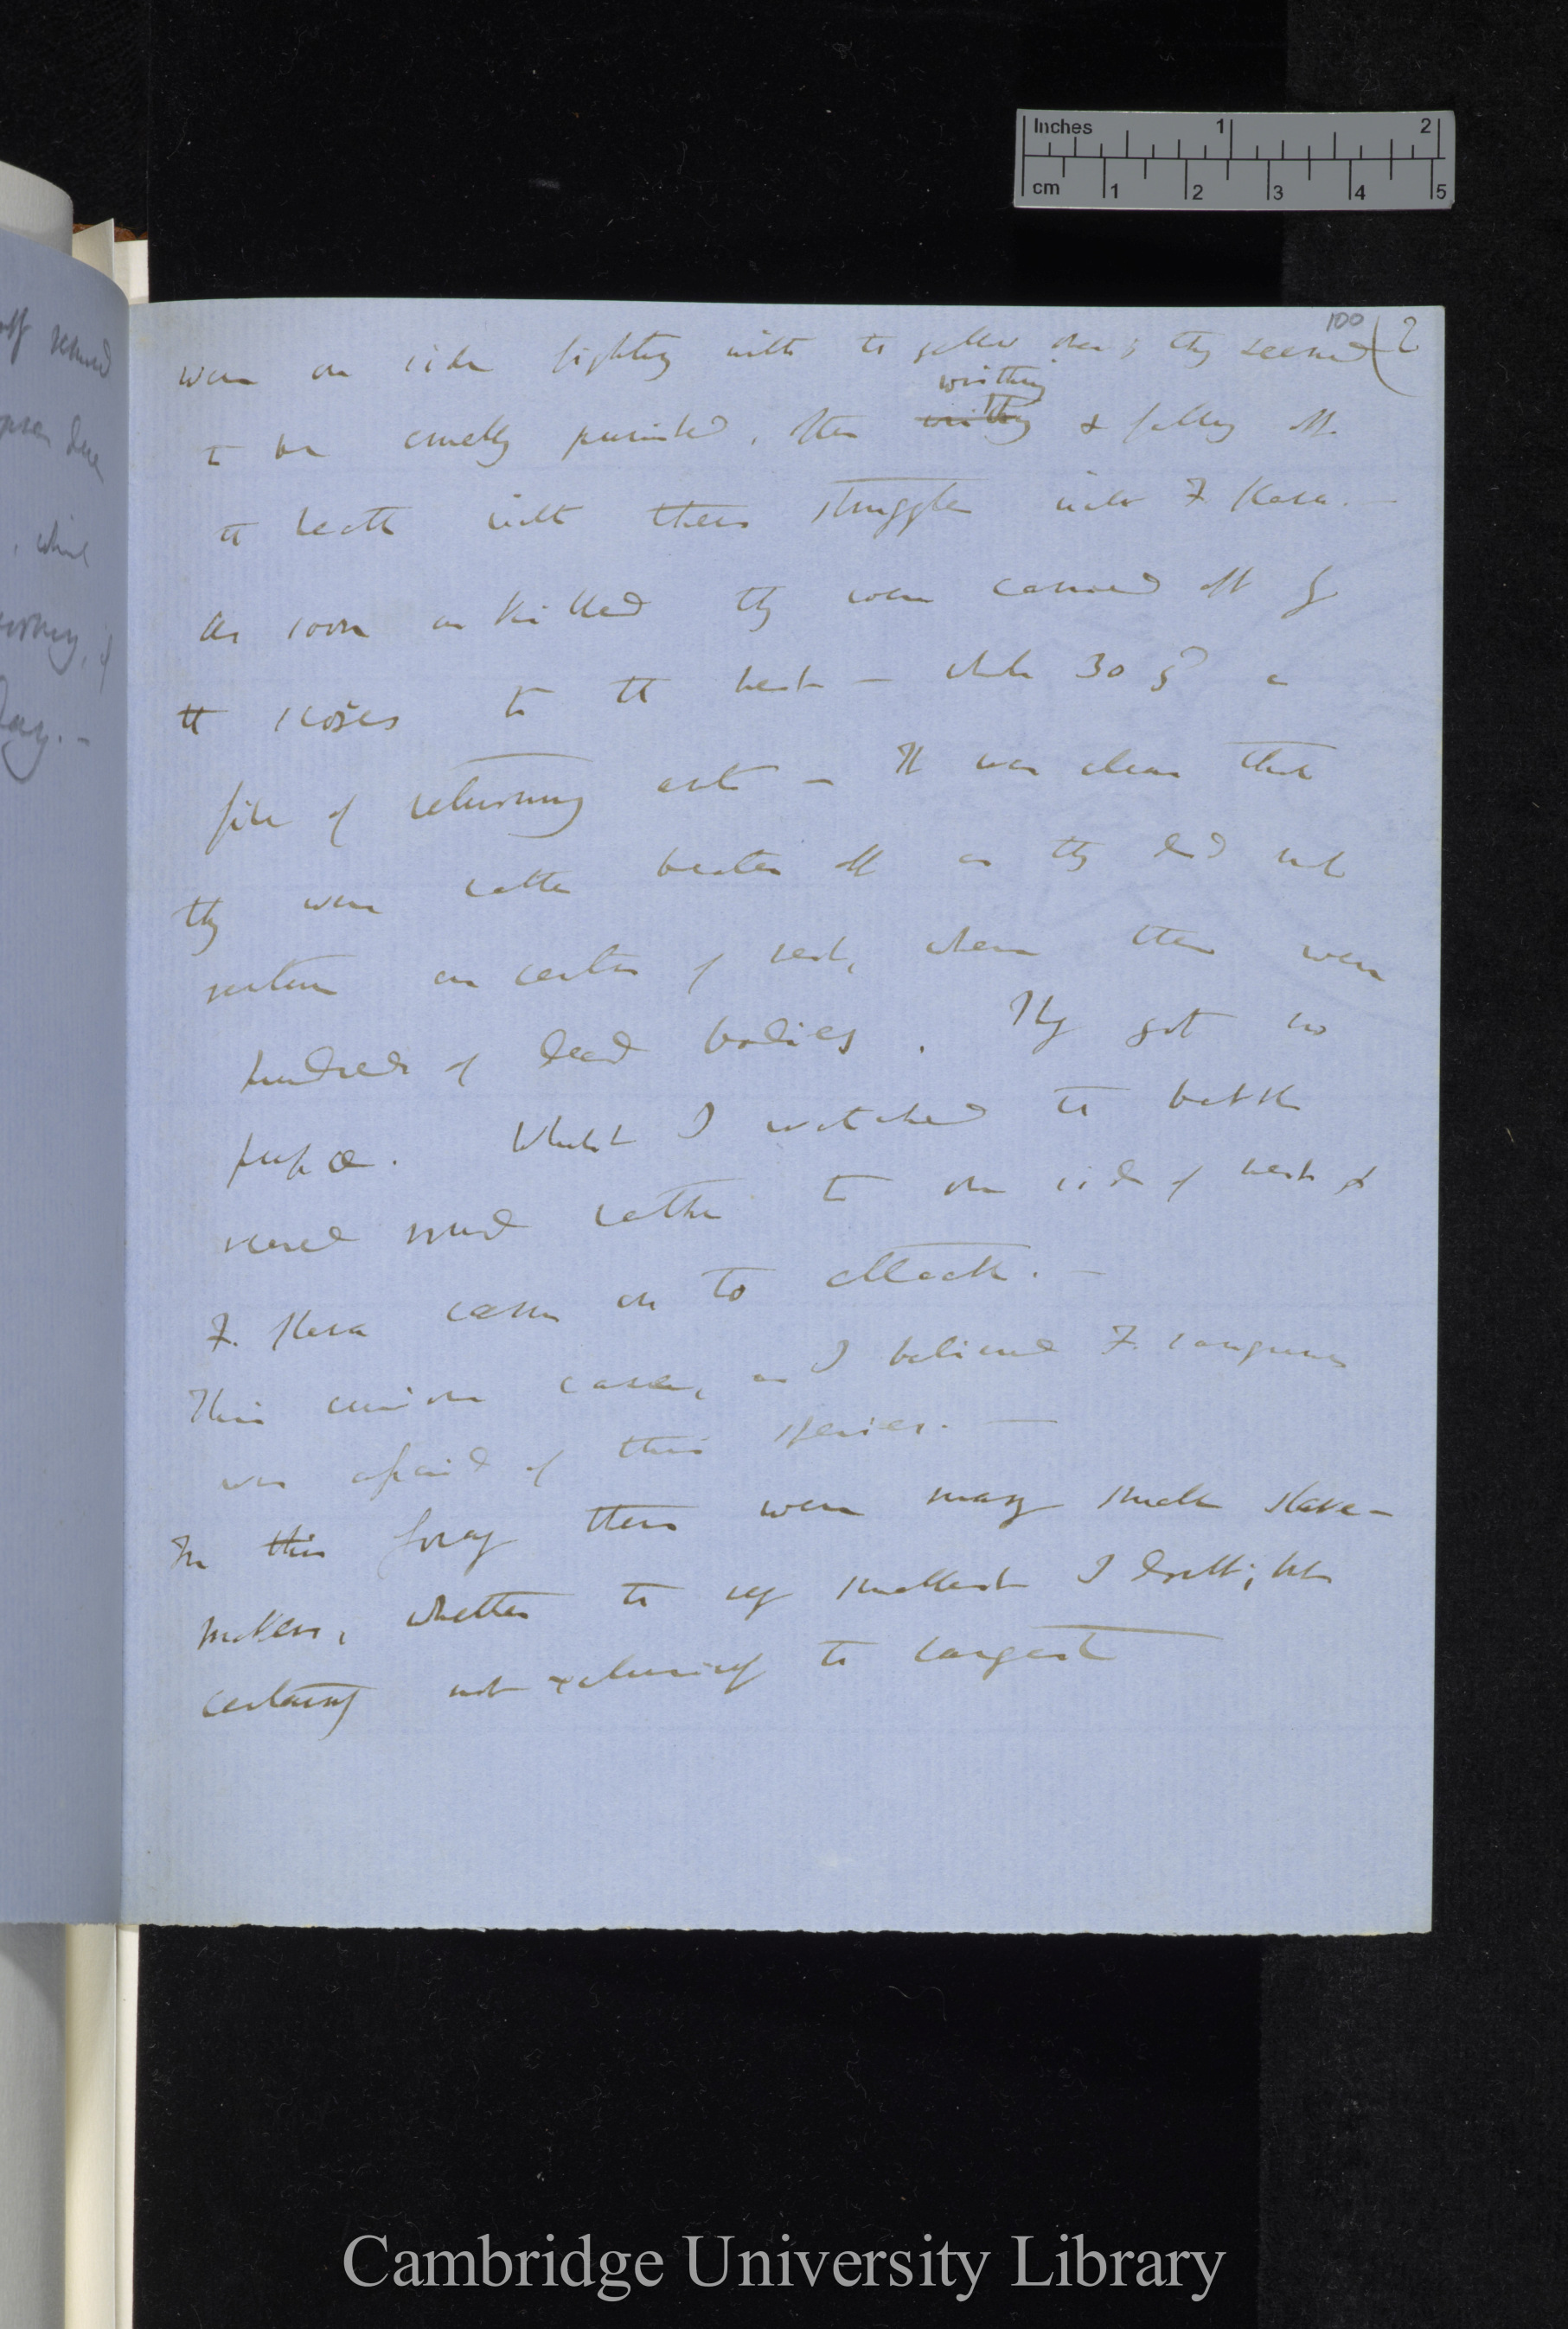 Inches 1 2
cm 1 2 3 4 5
100 (2
were on side fighting with the yellow ones; they seemed
writhing
to be cruelly punished, often writhing & falling off
the heath with their struggles with F. flava. —
As soon as killed they were carried off by
the to the nest — while 30 a
file of returning ants — It was clear that
they were rather beaten off as they did not
venture on centre of nest, where there were
hundreds of dead bodies. They got no
pupæ. Whilst I watched the battle
several moved rather to one side of nest &
F. flava came on to attack. —
This curious case, as I believed F. sanguinea
was afraid of this species. —
In this foray there were many small slave-
makers, whether the very smallest I doubt; but
certainly not exclusively the largest
Cambridge University Library